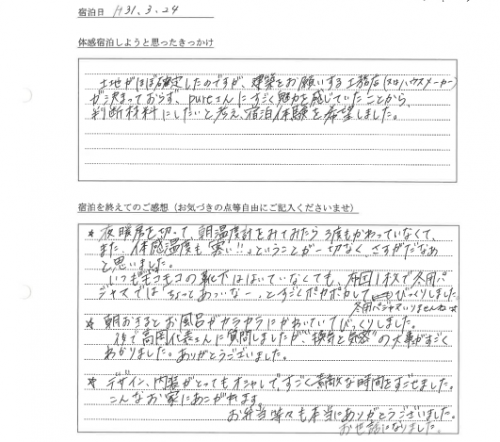 宿泊日 H31.3.24
体感宿泊しようと思ったきっかけ
土地がほぼ確定したのですが、建築をお願いする工務店(又はハウスメーカー)
が決まっておらず、pureさんにすごく魅力を感じていたことから、
判断材料にしたいと考え、宿泊体験を希望しました。
宿泊を終えてのご感想（お気づきの点等自由にご記入くださいませ）
* 夜暖房を切って、朝温度計をみてみたら3度もかわっていなくて、
また、体感温度も"寒い!!"ということが一切なく、さすがだなあ
と思いました。
いつもモコモコの靴下ははいていなくても、布団1枚で冬用パ
ジャマでは「ちょっとあついなー」とすごくポカポカして びっくりしました。
冬用パジャマいりませんね
* 朝おきるとお風呂がカラカラにかわいていてびっくりしました。
後で高岡代表さんに質問しましたが、換気と気密の大事がすごく
わかりました。ありがとうございました。
* デザイン、内装がとってもオシャレで、すごく素敵な時間をすごせました。
こんなお家にあこがれます。
お弁当等々も本当にありがとうございました。
お世話になりました。